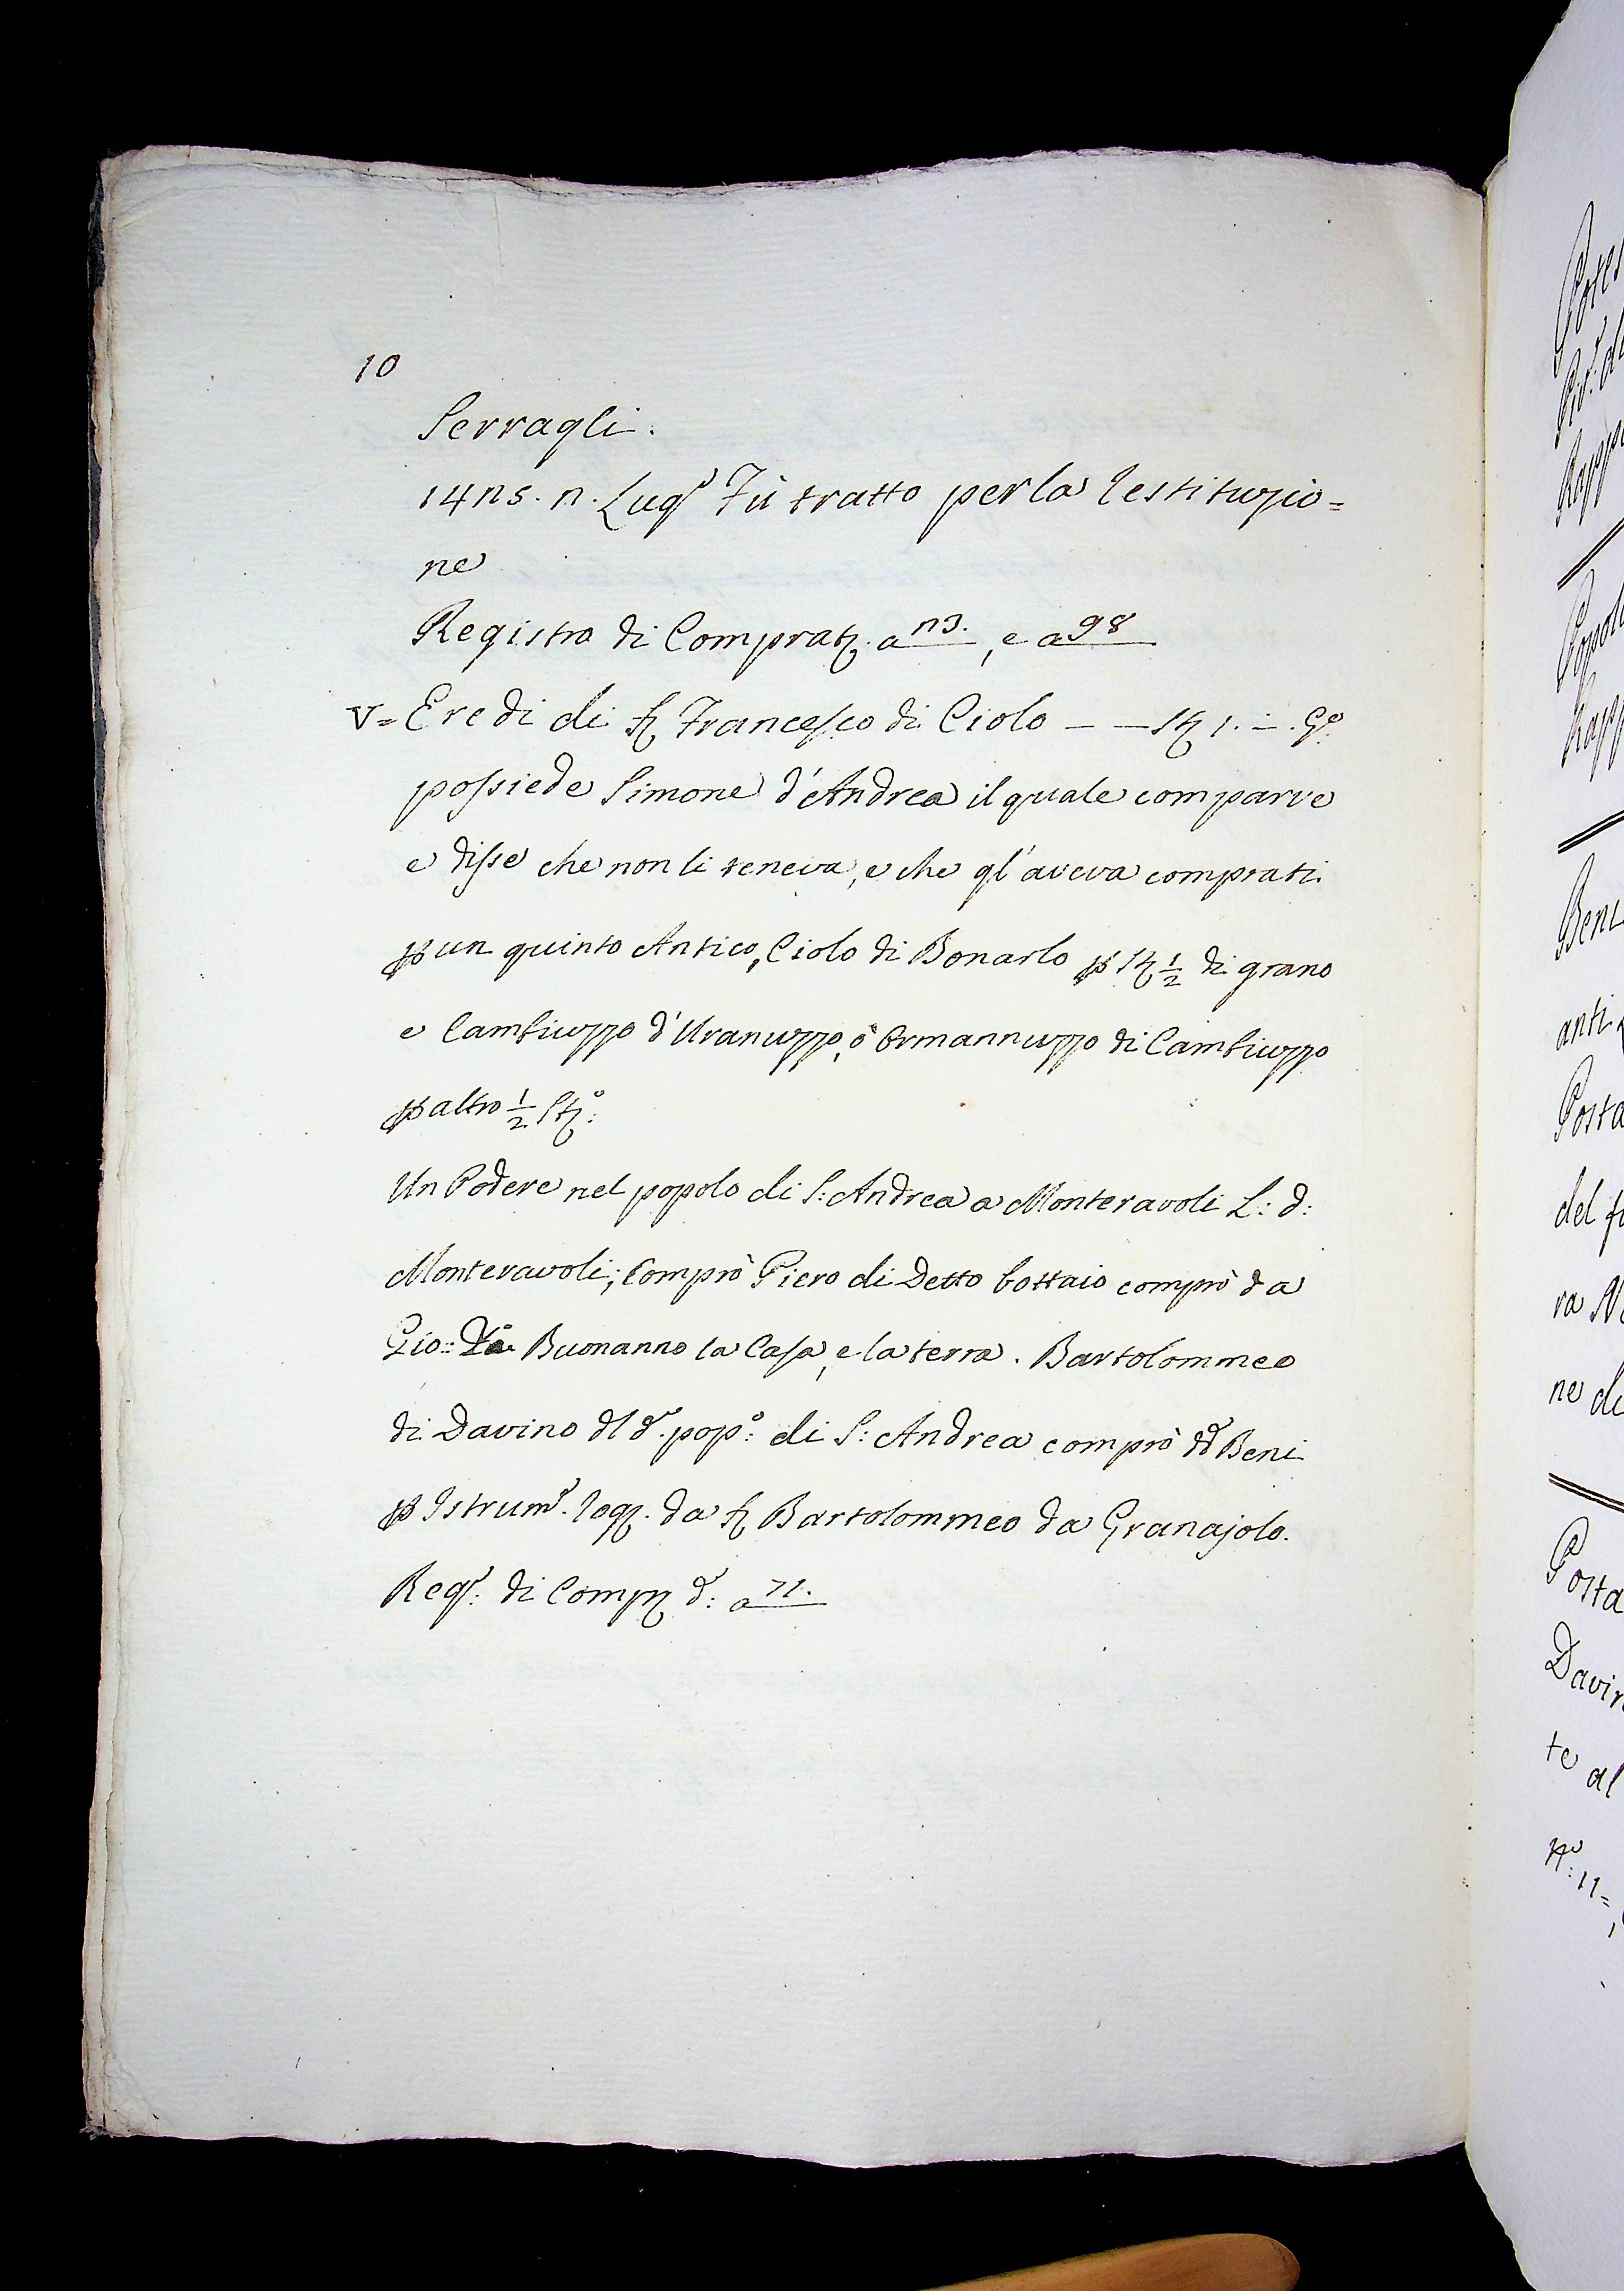 10
Serragli.
14ns. n. Lug.º Fù tratto per la restituzio=
ne
Registro di Comprat. a n3., e a 98
V= Eredi di S. Francesco di Ciolo — — St. 1. — . G.º
possiede Simone d'Andrea il quale comparve
e disse che non li teneva, e che gl'aveva comprati
p un quinto Antico, Ciolo di Bonarlo p St. ½ di grano
e Cambiuzzo d'Uranuzzo, ò Ormannuzzo di Cambiuzzo
p altro ½ St.º:
Un Podere nel popolo di S: Andrea a Monteravoli L: d:
Monteravoli; Comprò Piero di Detto bottaio comprò da
Gio:: Buonanno la Casa, e la terra. Bartolommeo
di Davino dl d.º pop.º: di S: Andrea comprò dd Beni
p Istrum.º rog. da S. Bartolommeo da Granajolo.
Reg.º: di Comp. d.: a 71.
Posta
anti
Posta
del
ra
ne di
te al
11=